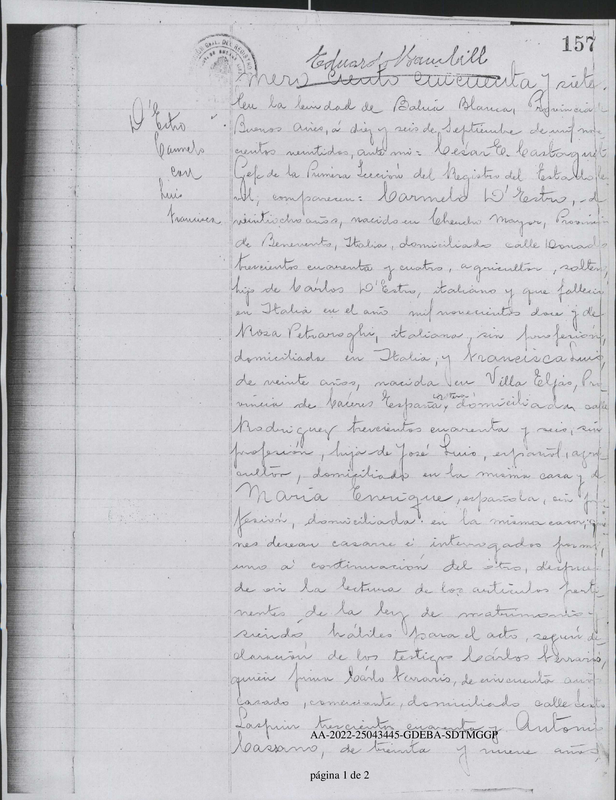 157
Eduardo
mero ciento cincuenta y siete.
En la ciudad de Bahia Blanca, Provincia
Buenos Aires, á diez y seis de Septiembre de mil no
cientos veintidos, ante mi: César E. Castonguet
Gefe de la Primera Sección del Registro del Estado
vil, comparecen: Carmelo D'Estro, de
veintiocho años, nacido en Mayor, Provin
de Benevento, Italia, domiciliado calle Donado
trescientos cuarenta y cuatro, agricultor, solter
hijo de Carlos D'Estro, italiano y que falleció
en Italia en el año mil novecientos doce y de
Rosa Petraroghi, italiana, sin profesión,
domiciliada en Italia, y Francisca Luis,
de veinte años, nacida en Villa Elfás, Pro
vincia de Cáceres España, domiciliada calle
Rodriguez trescientos cuarenta y seis, sin
profesión, hija de José Luis, español, agri
cultor, domiciliado en la misma casa y d
María Enrique, española, sin pro
fesión, domiciliada en la misma casa; quie
nes desean casarse é interrogados por mi,
uno á continuación del otro, después
de oir la lectura de los artículos perti
nentes de la ley de matrimonio
siendo hábiles para el acto, según de
claración de los testigos Cárlos Ferrario,
quien firma Cárlo Ferrario, de cincuenta años
casado, comerciante, domiciliado calle
trescientos cuarenta y Antonio
Cassano, de treinta y nueve años,
D'Estro
Carmelo
con
Luis
Francisca
AA-2022-25043445-GDEBA-SDTMGGP
página 1 de 2